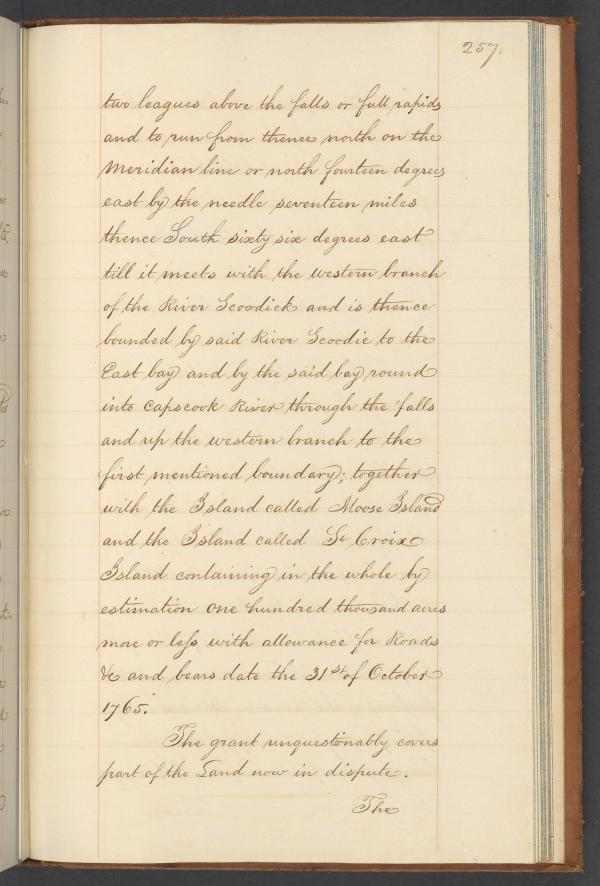 257.
two leagues above the falls or full rapids
and to run from thence north on the
Meridian line or north fourteen degrees
east by the needle seventeen miles
thence South sixty six degrees east
till it meets with the western branch
of the River Scoodick and is thence
bounded by said River Scoodic to the
East bay and by the said bay round
into Capscook River through the falls
and up the western branch to the
first mentioned boundary; together
with the Island called Moose Island
and the Island called St Croix
Island containing in the whole by
estimation one hundred thousand acres
more or less with allowance for Roads
&c and bears date the 31st of October
1765."
The grant unquestionably covers
part of the Land now in dispute.
The